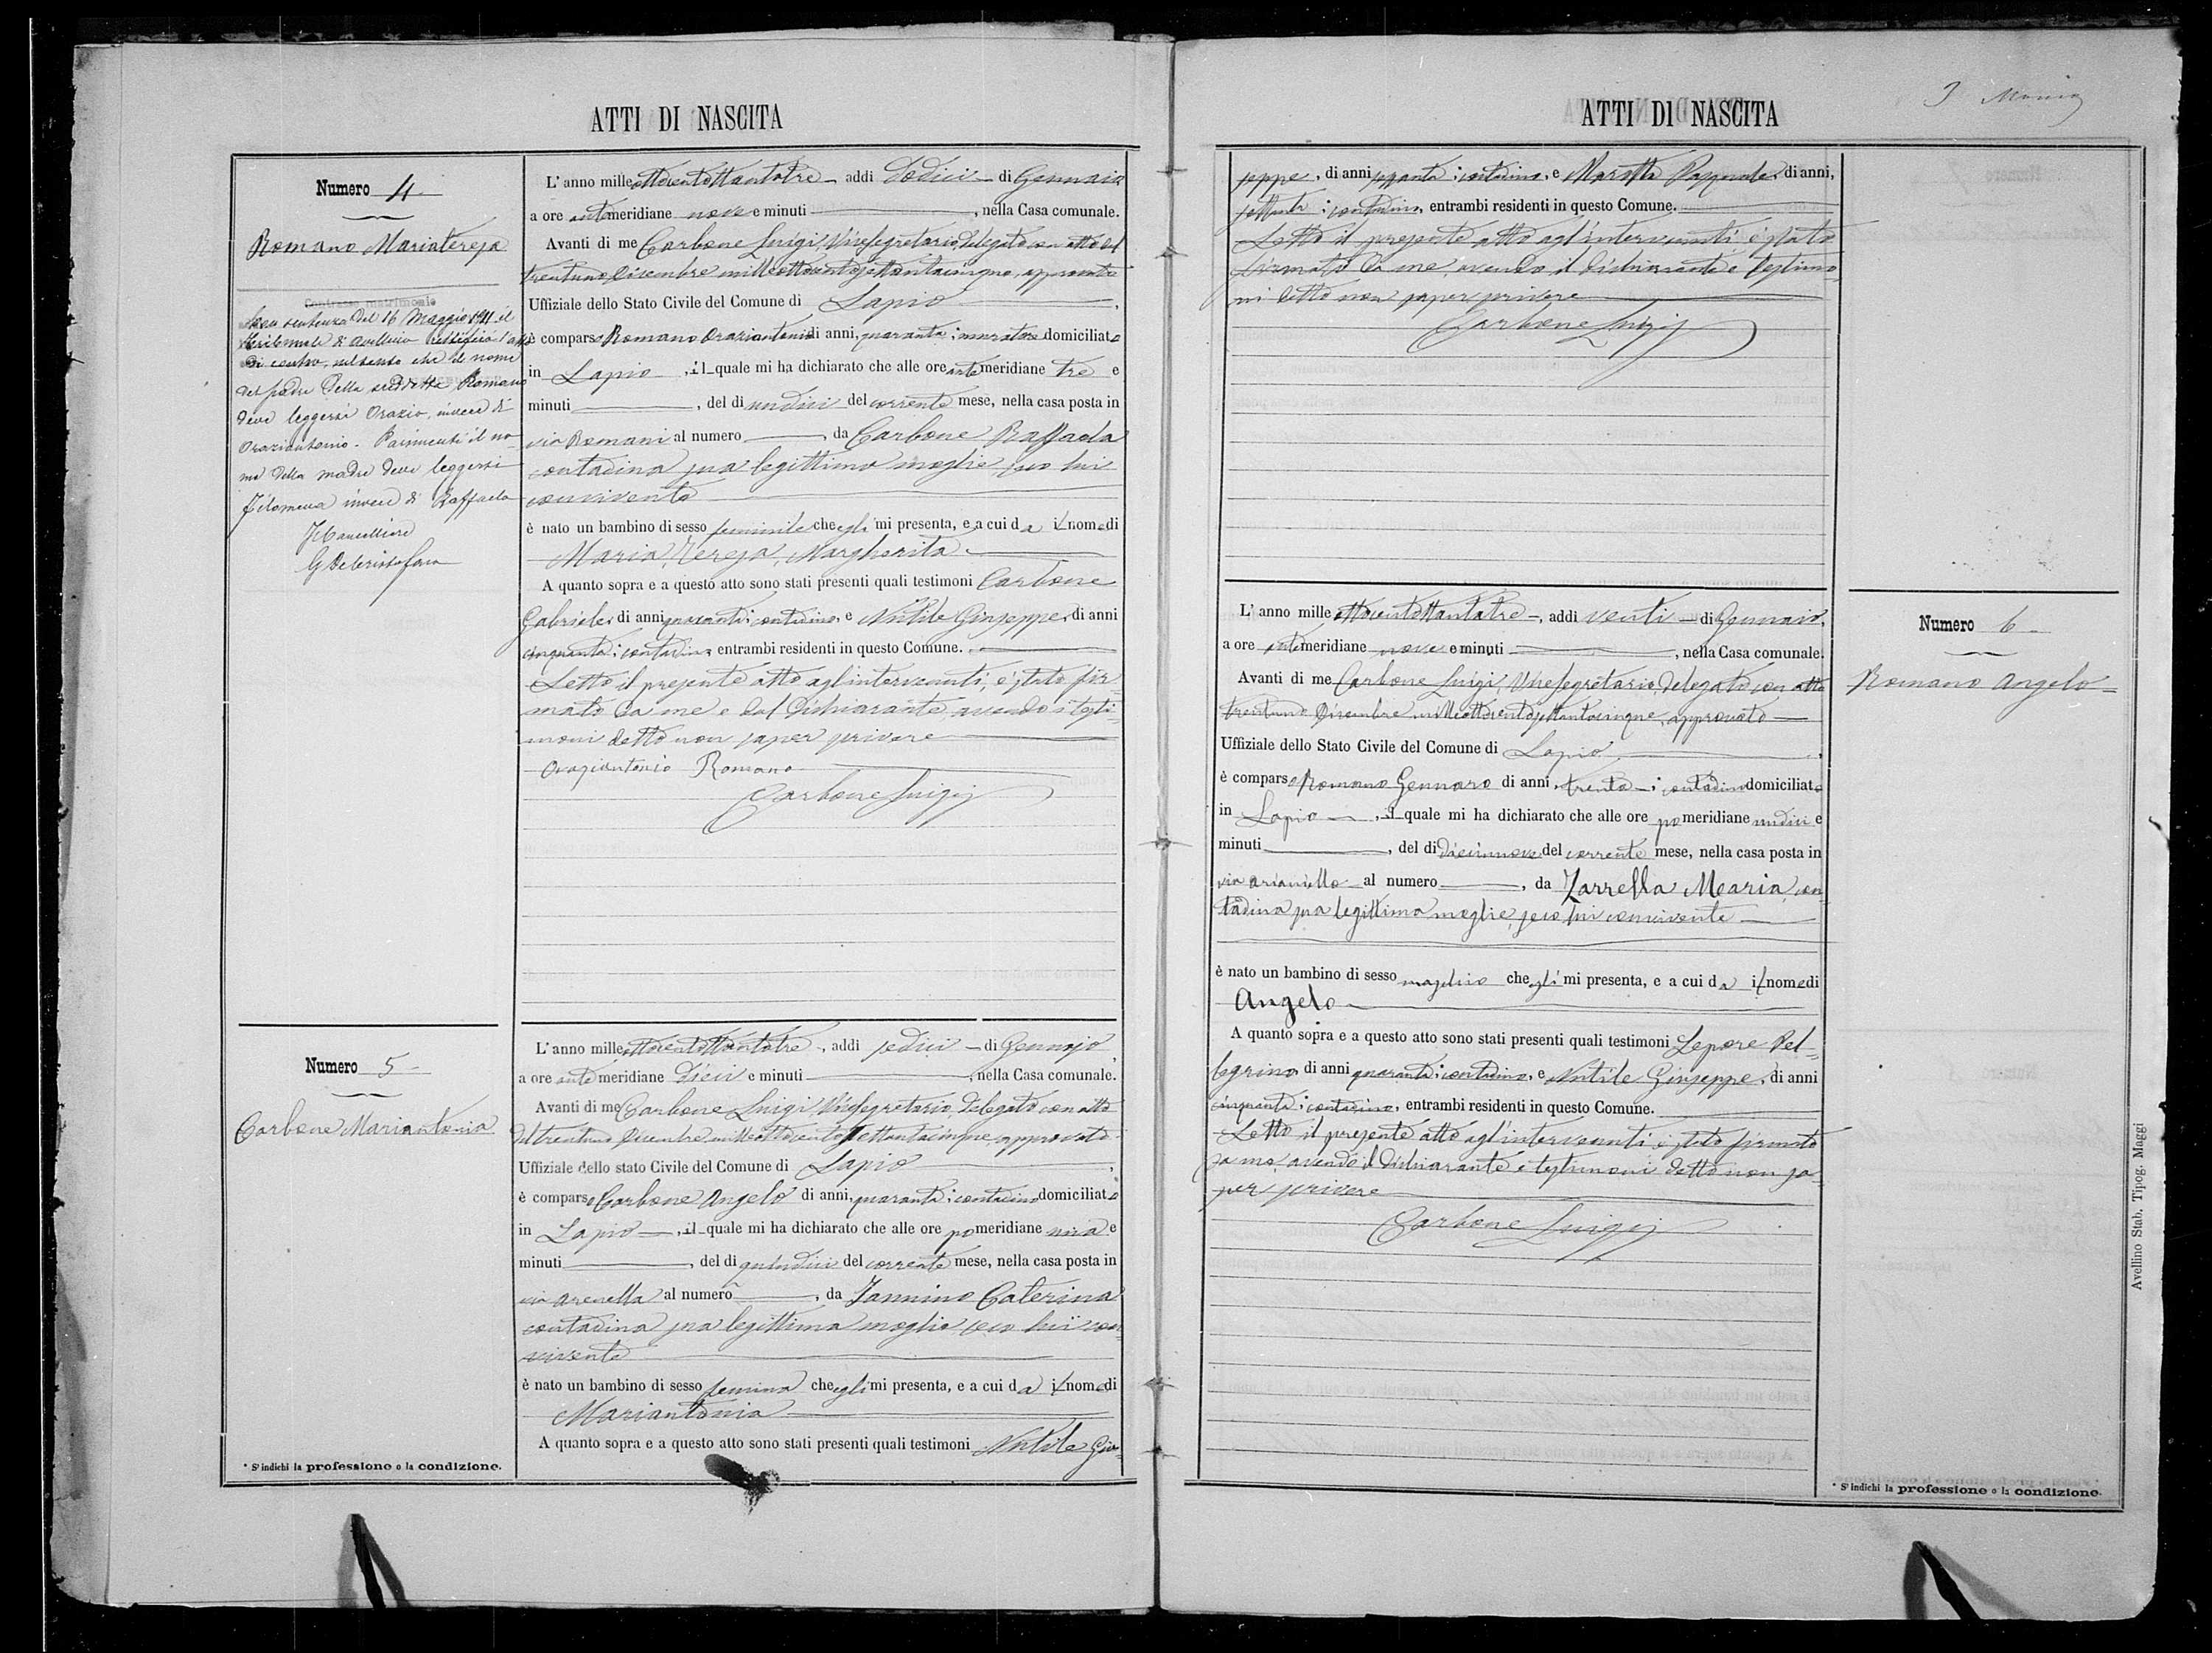 ATTI DI NASCITA
Numero 4.
Romano Mariateresa
Contrasse matrimonio
sentenza del 16 Maggio 1911 il
Tribunale di Avellino rettificò l'atto
di contro, nel senso che il nome
del padre della suddetta Romano
deve leggersi Orazio, invece di
Oraziantonio. Parimenti il no-
me della madre deve leggersi
Filomena invece di Raffaela
Il Cancelliere
L'anno mille ottocentottantatre, addì dodici di Gennaio
a ore antimeridiane nove e minuti , nella Casa comunale.
Avanti di me Carbone Luigi, Vicesegretario, delegato con atto del
trentuno Dicembre milleottocentosettantacinque, approvato
Uffiziale dello Stato Civile del Comune di Lapio ,
è comparso Romano Oraziantonio di anni, quaranta; muratore domiciliato
in Lapio , il quale mi ha dichiarato che alle ore antimeridiane tre e
minuti , del dì undici del corrente mese, nella casa posta in
via Romani al numero , da Carbone Raffaela
contadina sua legittima moglie, seco lui
convivente
è nato un bambino di sesso feminile che egli mi presenta, e a cui da il nome di
Maria, Teresa, Margherita
A quanto sopra e a questo atto sono stati presenti quali testimoni Carbone
Gabriele, di anni quaranta; contadino, e Nutile Giuseppe, di anni
cinquanta; contadino, entrambi residenti in questo Comune.
Letto il presente atto agl'intervenuti, è stato fir-
mato da me e dal dichiarante, avendo i testi-
moni detto non saper scrivere
Oraziantonio Romano
Carbone Luigi
Numero 5
Carbone Mariantonia
L'anno mille ottocentottantatre, addì sedici di Gennajo,
a ore antimeridiane dieci e minuti , nella Casa comunale.
Avanti di me Carbone Luigi Vicesegretario, delegato con atto
del trentuno Dicembre milleottocentosettantacinque, approvato
Uffiziale dello stato Civile del Comune di Lapio ,
è comparso Carbone Angelo di anni, quaranta; contadino domiciliato
in Lapio , il quale mi ha dichiarato che alle ore pomeridiane una e
minuti , del dì quindici del corrente mese, nella casa posta in
via Arenella al numero , da Iannino Caterina
contadina sua legittima moglie seco lui con-
vivente
è nato un bambino di sesso femina che egli mi presenta, e a cui da il nome di
Mariantonia
A quanto sopra e a questo atto sono stati presenti quali testimoni Nutile Giu-
* S'indichi la professione o la condizione.
ATTI DI NASCITA
3
seppe, di anni ; contadino, e Pasquale, di anni,
settanta; contadino, entrambi residenti in questo Comune.
Letto il presente atto agl'intervenuti, è stato
firmato da me, avendo il dichiarante e testimo-
ni detto non saper scrivere
Carbone Luigi
Numero 6
Romano Angelo
L'anno mille ottocentottantatre, addì venti di Gennaio,
a ore antimeridiane nove e minuti , nella Casa comunale.
Avanti di me Carbone Luigi, Vicesegretario, delegato con atto
trentuno Dicembre milleottocentosettantacinque, approvato
Uffiziale dello Stato Civile del Comune di Lapio ,
è comparso Romano Gennaro di anni, trenta; contadino domiciliato
in Lapio , il quale mi ha dichiarato che alle ore pomeridiane undici e
minuti , del dì diecinnove del corrente mese, nella casa posta in
via Arianiello al numero , da Zarrella Maria, con-
tadina sua legittima moglie, seco lui convivente
è nato un bambino di sesso che egli mi presenta, e a cui da il nome di
Angelo
A quanto sopra e a questo atto sono stati presenti quali testimoni Lepore Pel-
legrino, di anni quaranta; contadino, e Nutile Giuseppe, di anni
cinquanta; contadino, entrambi residenti in questo Comune.
Letto il presente atto agl'intervenuti è stato firmato
da me avendo il dichiarante e testimoni detto non sa-
per scrivere
Carbone Luigi
* S'indichi la professione o la condizione.
Avellino Stab. Tipog. Maggi